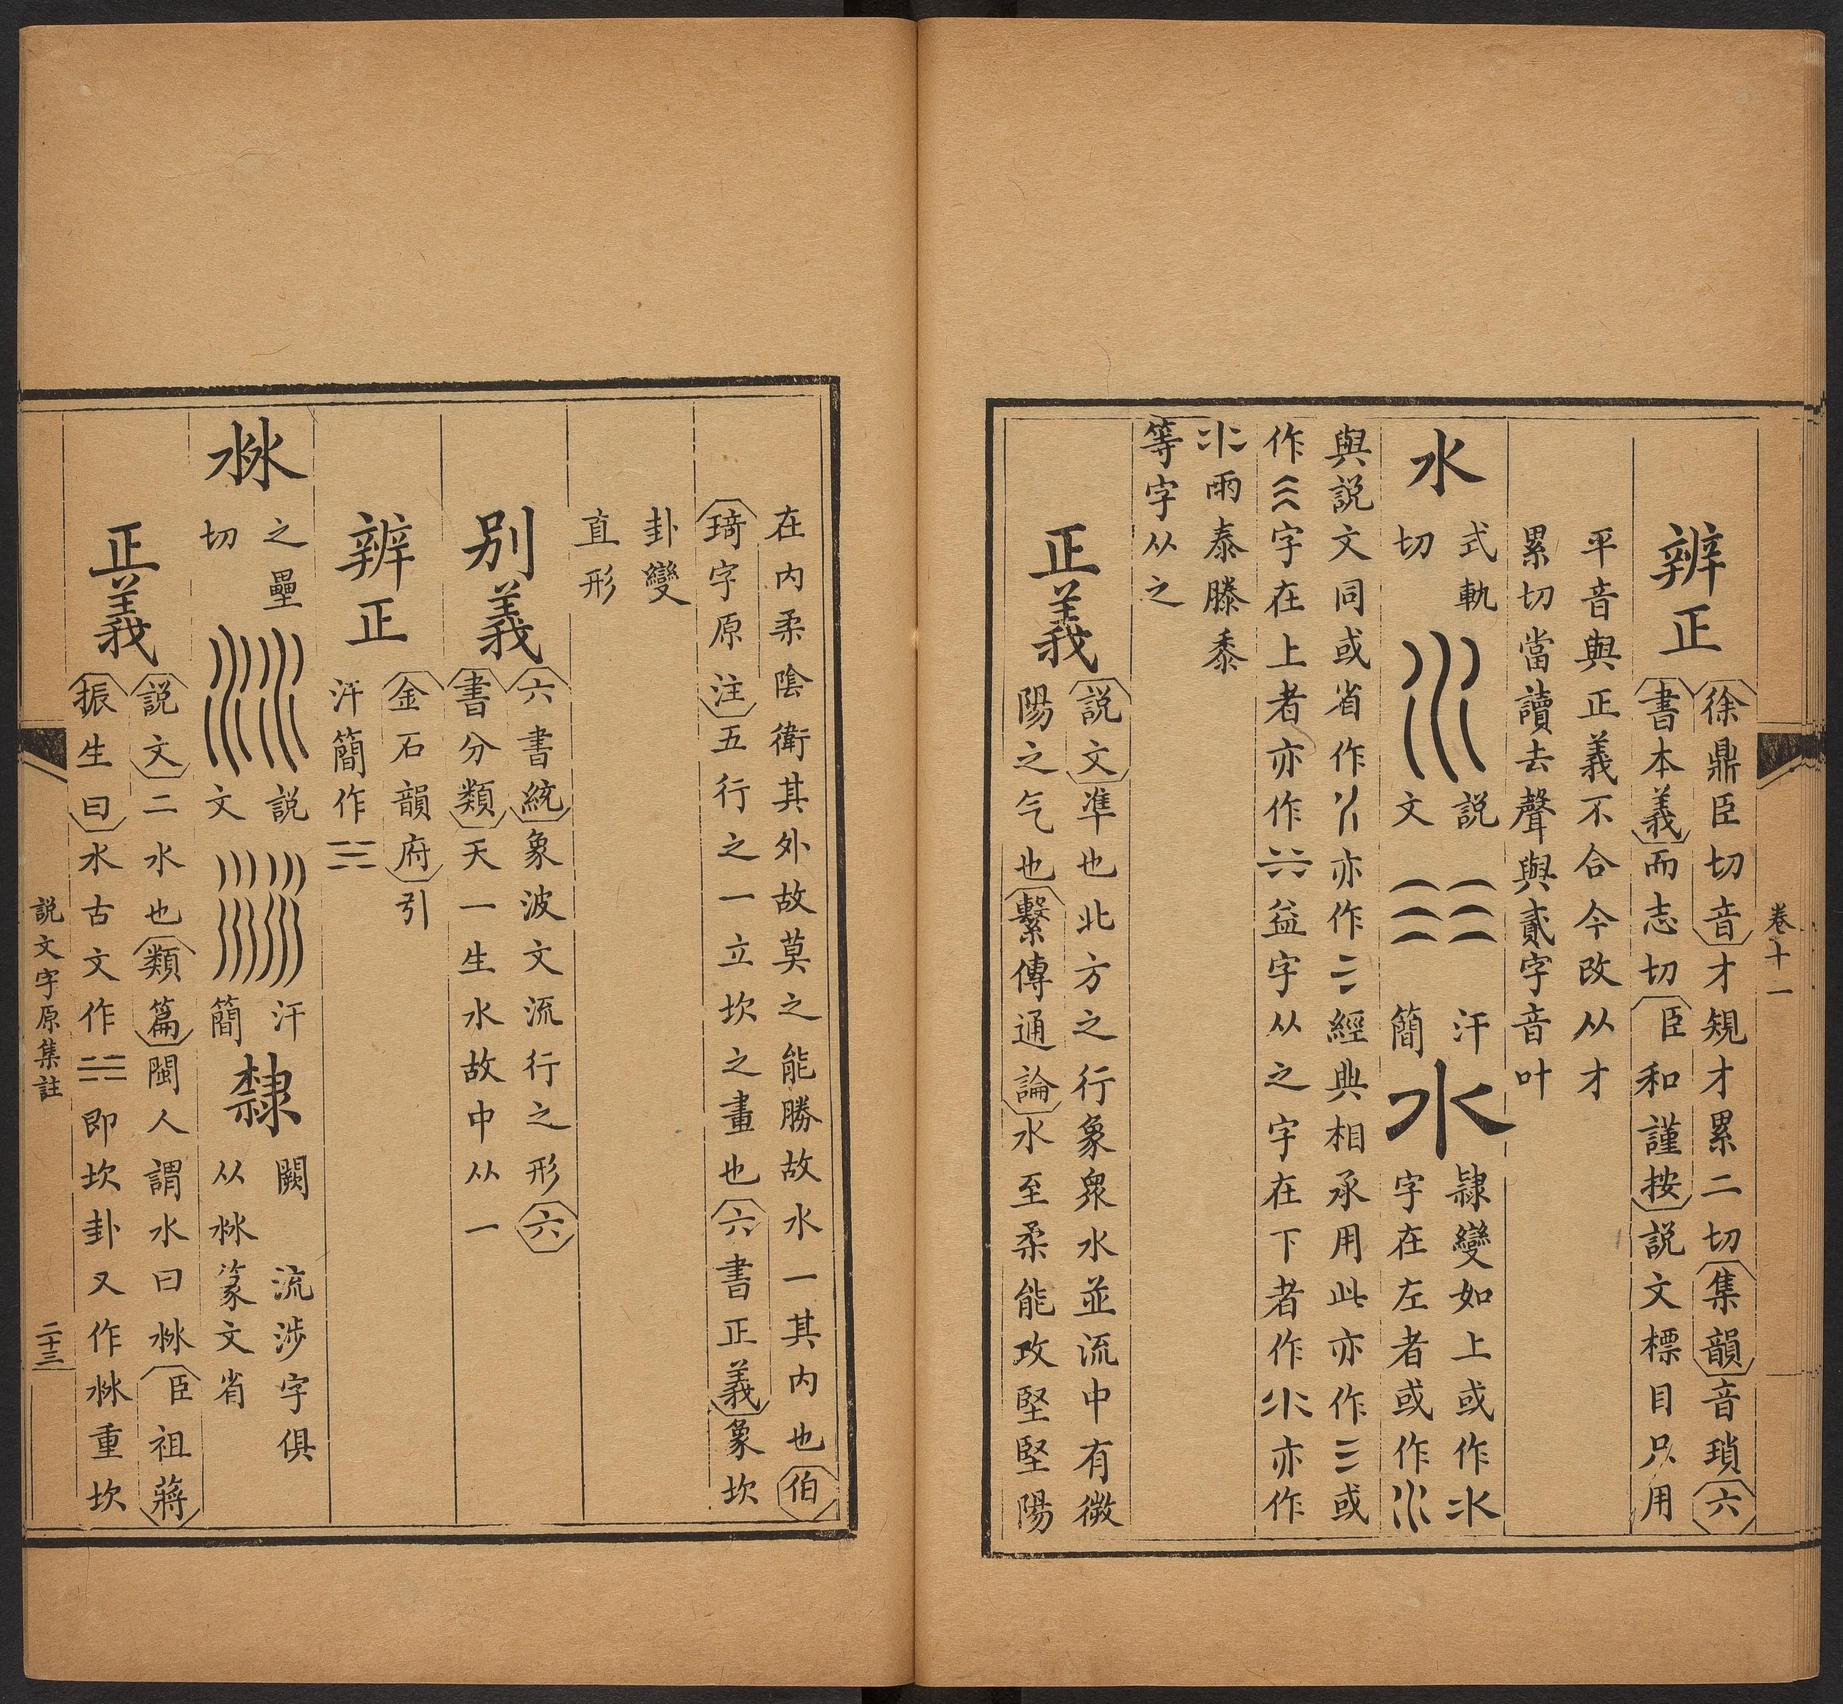 卷十一
辨正
徐鼎臣切音才規才累二切集韻音瑣六
書本義而志切臣和謹按説文標目只用
平音與正義不合今改从才
累切當讀去聲與貳字音叶
水
式軌
切
説
文
汗
簡
水
隷變如上或作氺
字在左者或作
與説文同或省作亦作二經典相承用此亦作三或
作字在上者亦作益字从之字在下者作氺亦作
雨泰滕黍
等字从之
正義
説文準也北方之行象衆水並流中有微
陽之气也繫傳通論水至柔能攻堅堅陽
在内柔陰衛其外故莫之能勝故水一其内也伯
琦字原注五行之一立坎之畫也六書正義象坎
卦變
直形
别義
六書統象波文流行之形六
書分類天一生水故中从一
辨正
金石韻府引
汗簡作
沝
之壘
切
説
文
汗
簡
隸
闕 流涉字俱
从沝篆文省
正義
説文二水也類篇閩人謂水曰沝臣祖蔣
振生曰水古文作☵即坎卦又作沝重坎
説文字原集註
二十三